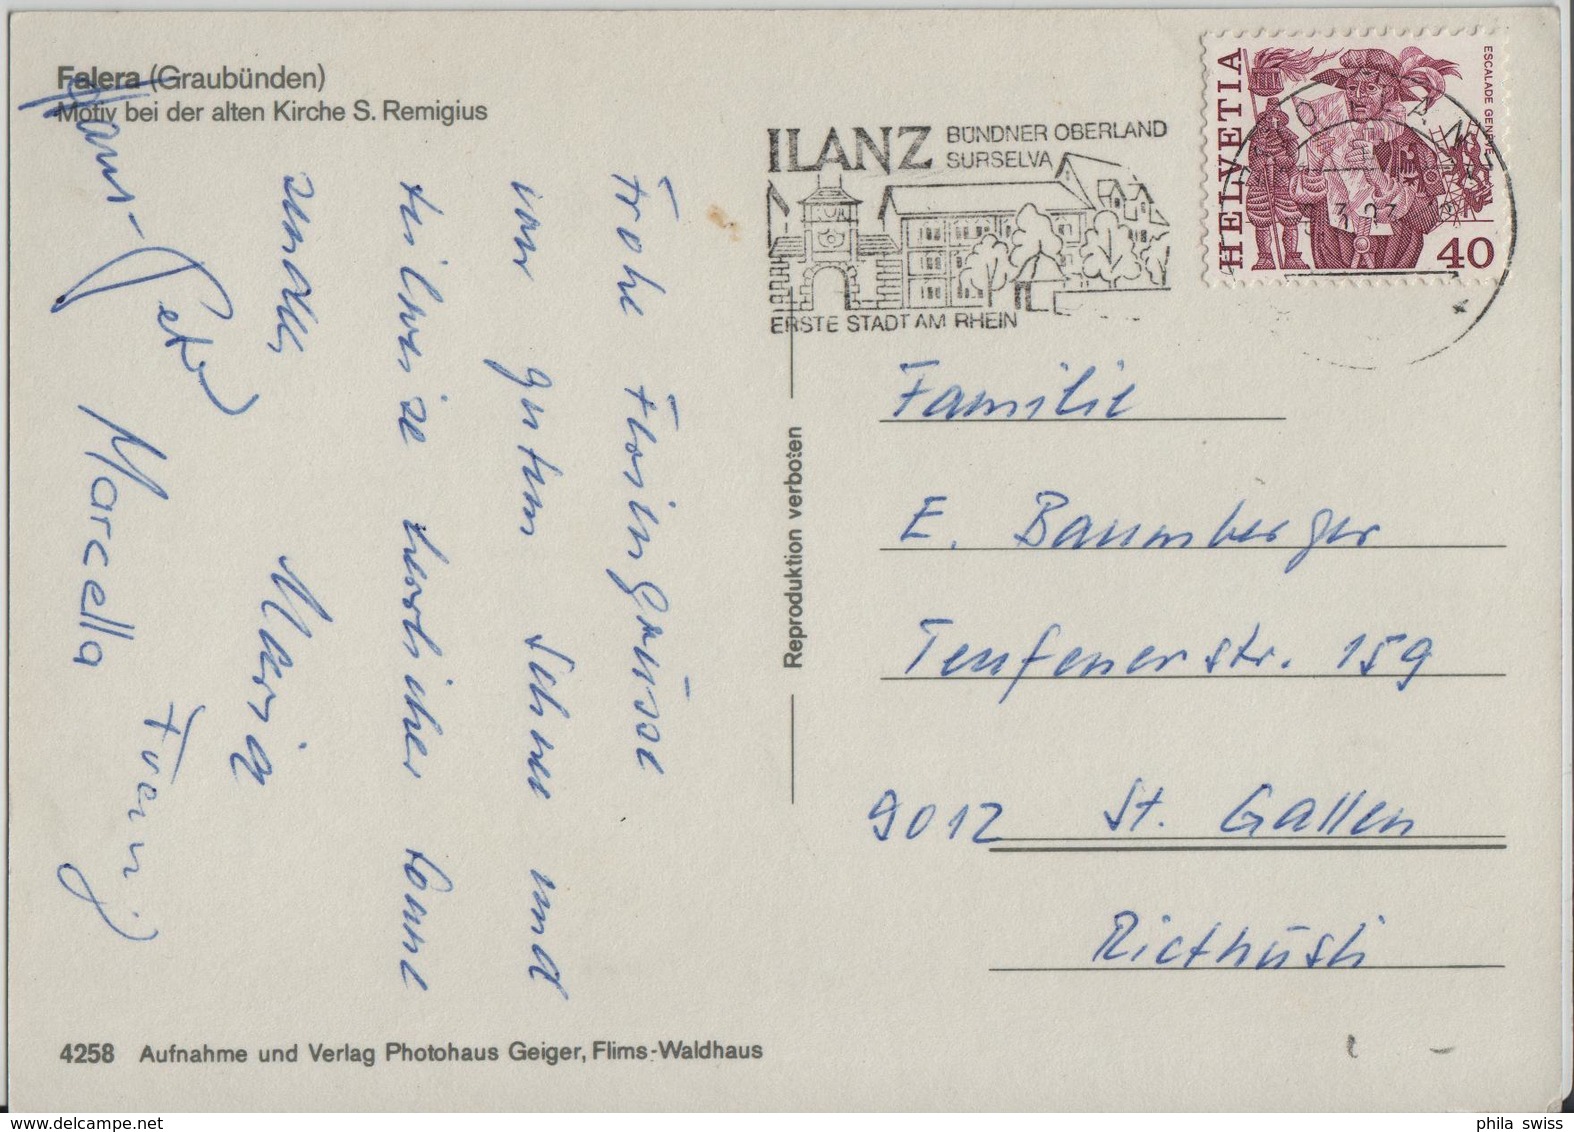 Falera (Graubünden)
Motiv bei der alten Kirche S. Remigius
ILANZ BÜNDNER OBERLAND
SURSELVA
ERSTE STADT AM RHEIN
HELVETIA
ESCALADE GENÈVE
40
Frohe Ferien Grüsse
von gutem Schnee und
teilweise herrlicher Sonne
senden
Maria
Franz
Hans-Peter
Marcella
Reproduktion verboten
Familie
E. Baumberger
Teufenerstr. 159
9012 St. Gallen
Riethüsli
4258 Aufnahme und Verlag Photohaus Geiger, Flims-Waldhaus
phila swiss